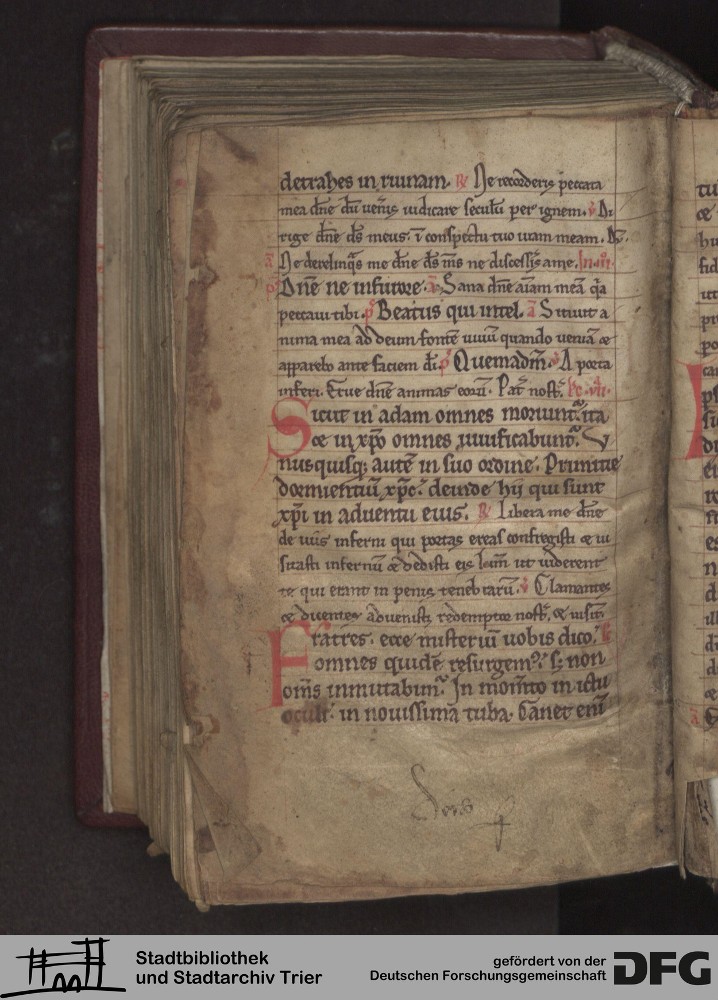 detrahes in ruinam. R Ne recorderis peccata
mea dn̄e dū ueneris iudicare seculū per ignem. v Di
rige dn̄e d̄s meus. ī conspectu tuo uiam meam.
a Ne derelinq̄s me dn̄e d̄s m̄s ne discesseris a me.
p̄ Dn̄e ne in furore. a Sana dn̄e aīam meā q̄a
peccaui tibi. p̄ Beatus qui intel. a Sitiuit a
nima mea ad deum fontē uiuū quando ueniā &
apparebo ante faciem d̄i. p̄ Quemadm̄. v A porta
inferi. Erue dn̄e animas eorū. Pat̄ nost̄.
Sicut in adam omnes moriunt᷑. ita
& in xp̄o omnes uiuificabunt᷑. V
nusquisq; autē in suo ordine. Primitie
dormientiū xp̄c. deinde hii qui sunt
xp̄i in aduentu eius. R Libera me dn̄e
de uiis inferni qui portas ereas confregisti & ui
sitasti infernū & dedisti eis lum̄ ut uiderent
te qui erant in penis tenebrarū. v Clamantes
& dicentes aduenisti redemptor nost̄.
Fratres. ecce misteriū uobis dico.
omnes quidē resurgem᷒. s; non
om̄s inmutabim᷒. In mom̄to in ictu
oculi. in nouissima tuba. Canet enī
Stadtbibliothek
und Stadtarchiv Trier
gefördert von der
Deutschen Forschungsgemeinschaft
DFG